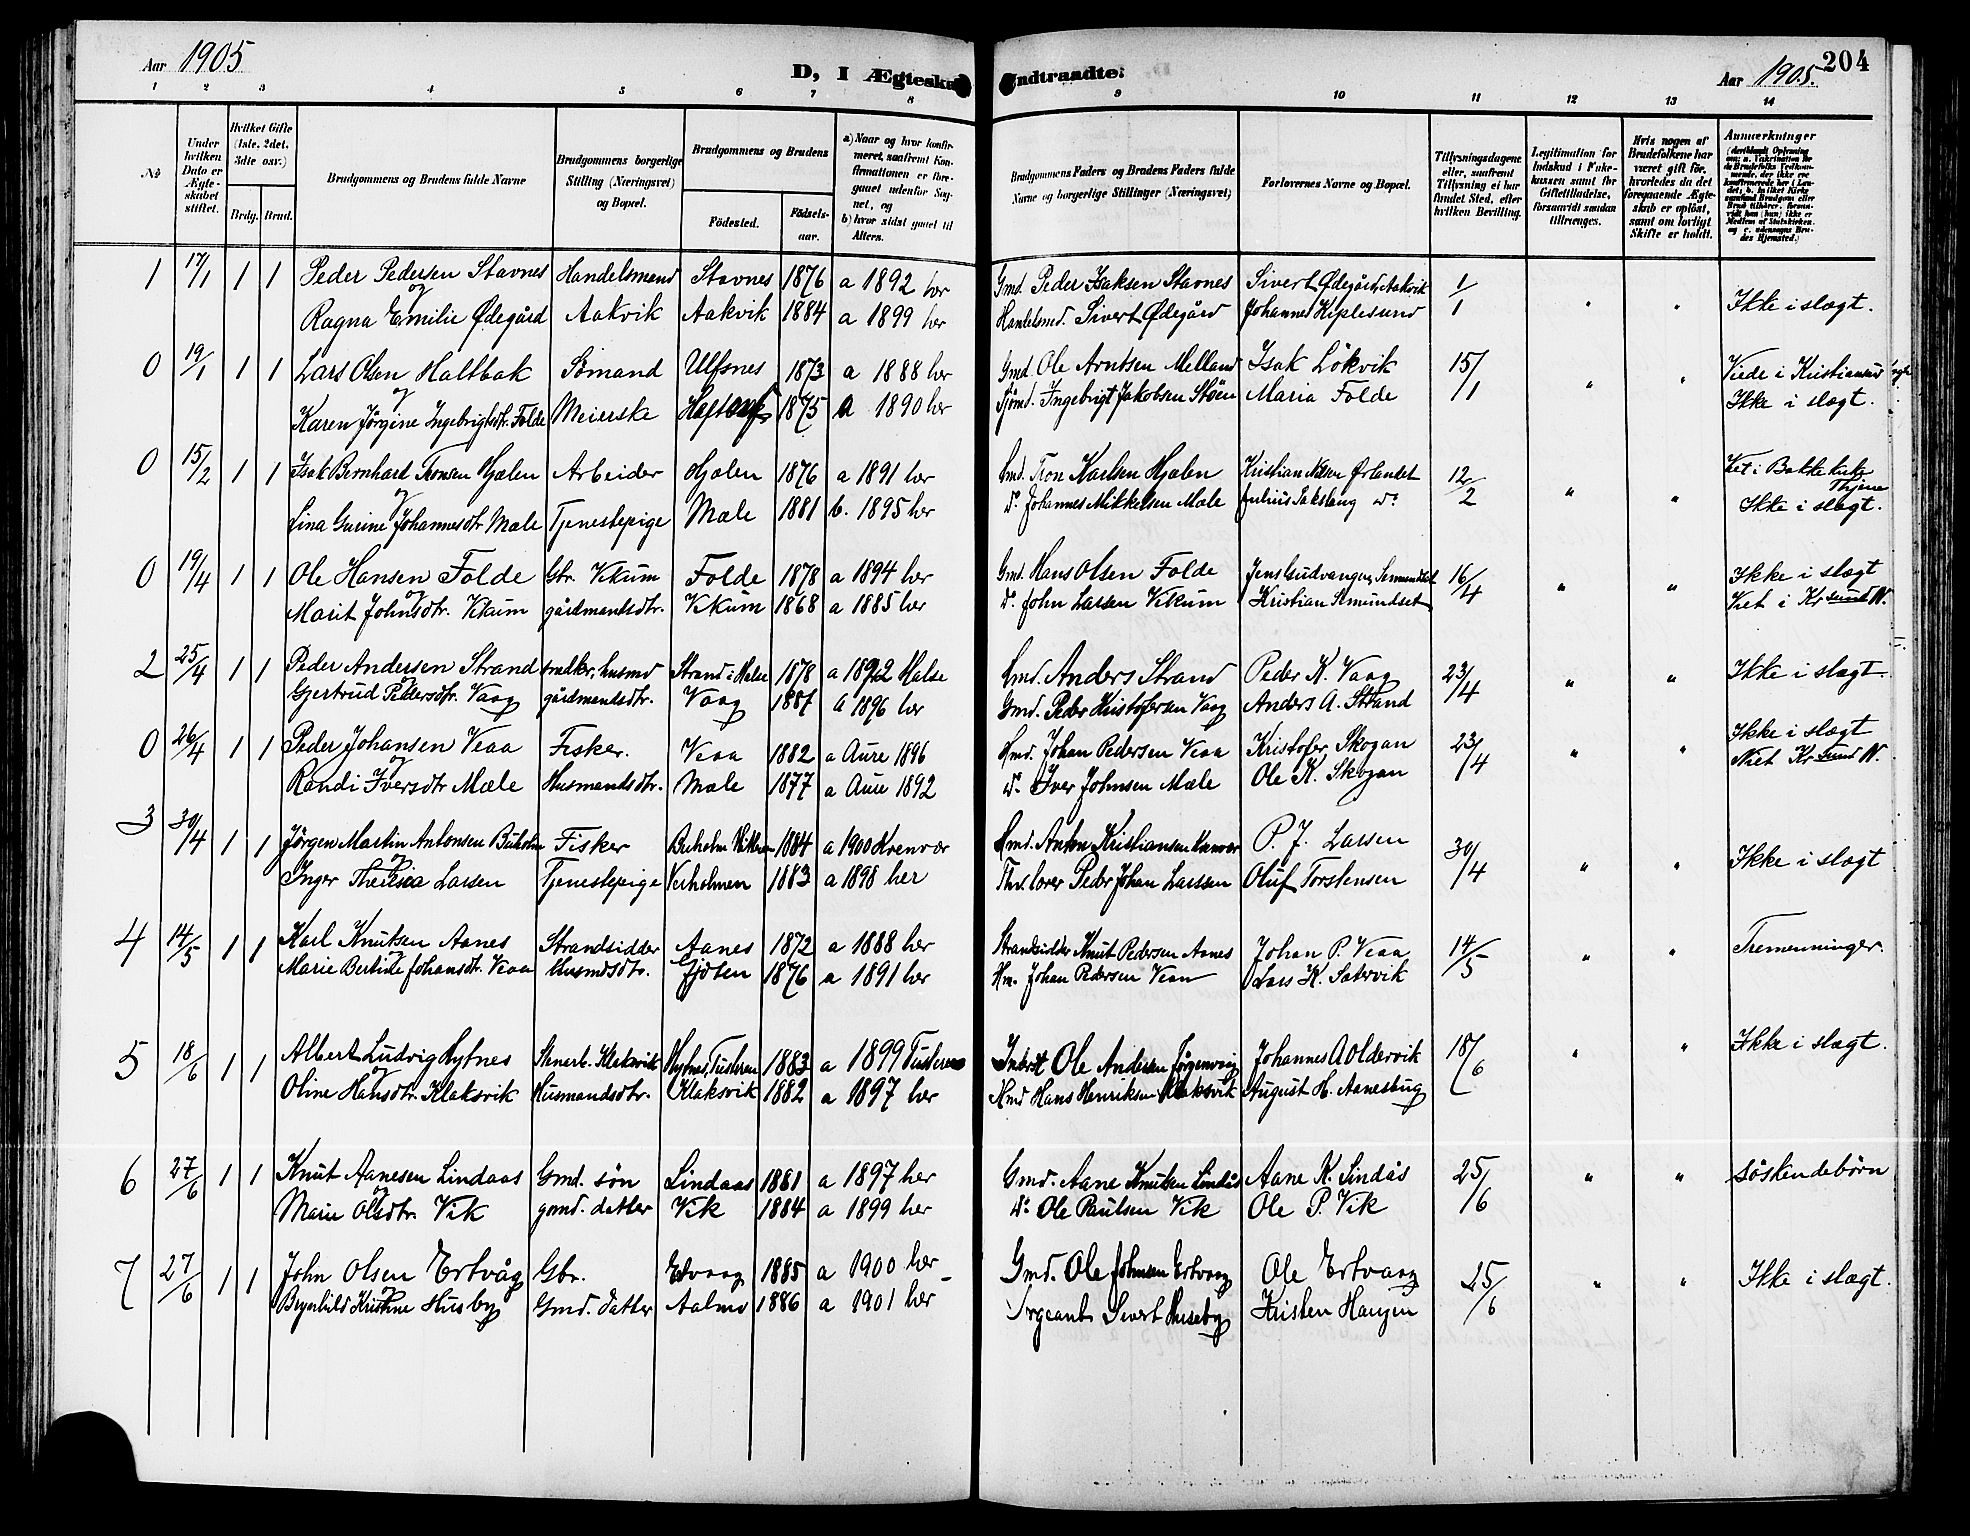 Aar 1905
D, I Ægteska
1 2 3 4 5 6 7 8
No
Under hvilken Dato er Ægteskabet stiftet.
Hvilket Gifte (1ste, 2det, 3die osv.)
Brdg. Brud.
Brudgommens og Brudens fulde Navne
Brudgommens borgerlige Stilling (Næringsvei) og Bopæl.
Brudgommens og Brudens
Fødested. Fødselsaar.
a) Naar og hvor konfirmeret, saafremt Konfirmationen er foregaaet udenfor Sognet, og
b) hvor sidst gaaet til Alters.
1 17/1 1 1 Peder Pedersen Stavnes Handelsmand Stavnes 1876 a 1892 her
og
Ragna Emilie Ødegård Aakvik Aakvik 1884 a 1899 her
0 19/1 1 1 Lars Olsen Haltbak Sømand Ulfsnes 1873 a 1888 her
og
Karen Jörgine Ingebrigtsdtr. Folde Meierske 1875 a 1890 her
0 15/2 1 1 Isak Bernhart Tronsen Hjælen Arbeider Hjælen 1876 a 1891 her
og
Lina Gurine Johannesdtr Mæle Tjenestepige Mæle 1881 b. 1895 her
0 19/4 1 1 Ole Hansen Folde Gbr. Vikum Folde 1878 a 1894 her
og
Marit Johnsdtr. Vikum gårdmandsdtr. Vikum 1868 a 1885 her
2 25/4 1 1 Peder Andersen Strand snedker, husmd Strand i Halse 1878 a 1892 Halse
og
Gjertrud Pedersdtr. Vaag gårdmandsdtr. Vaag 1887 a 1896 her
0 26/4 1 1 Peder Johansen Veaa Fisker. Veaa 1882 a Aure 1896
og
Randi Iversdtr Mæle Husmandsdtr. Mæle 1877 a Aure 1892
3 30/4 1 1 Jörgen Martin Antonsen Buholm Fisker Buholm 1884 a 1900
og
Inger Theresia Larsen Tjenestepige Veiholmen 1883 a 1898 her
4 14/5 1 1 Karl Knutsen Aanes Strandsidder Aanes 1872 a 1888 her
og
Marie Johansdtr. Veaa Husmdsdtr. Gjöten 1876 a 1891 her
5 18/6 1 1 Albert Ludvig Hytnes Stenarb. Klaksvik Hytnes, Tusteren 1883 a 1899 Tusteren
og
Oline Hansdtr. Klaksvik Husmandsdtr. Klaksvik 1882 a 1897 her
6 27/6 1 1 Knut Aanesen Lindaas Gmd. sön Lindaas 1881 a 1897 her
og
Marie Olsdtr. Vik gmd. datter Vik 1884 a 1899 her
7 27/6 1 1 John Olsen Ertvåg Gbr. Ertvaag 1885 a 1900 her
og
Brynhild Kristine Husby Gmd. datter Aalmo 1886 a 1901 her
ndtraadte.
Aar 1905. 204
9 10 11 12 13 14
Brudgommens Faders og Brudens Faders fulde Navne og borgerlige Stillinger (Næringsvei)
Forlovernes Navne og Bopæl.
Tillysningsdagene eller, saafremt Tillysning ei har fundet Sted, efter hvilken Bevilling.
Legitimation for Indskud i Enkekassen samt for Giftetilladelse, forsaavidt saadan tiltrænges.
Hvis nogen af Brudefolkene har været gift før, hvorledes da det foregaaende Ægteskab er opløst, samt om lovligt Skifte er holdt.
Anmærkninger
Gmd. Peder Isaksen Stavnes Sivert Ødegård, Aakvik 1/1 " " Ikke i slægt.
Handelsmd. Sivert Ødegård Johannes Kiplesund
Gmd. Ole Arntsen Melland Isak Lökvik 15/1 " " Viede i Kristiansund
Sjömd. Ingebrigt Jakobsen Stöen Maria Folde Ikke i slægt.
Gmd. Tron Karlsen Hjælen Kristian Nilsen Ørlandet 12/2 " " Viet i Bakke kirke Thjem
do Johannes Mikkelsen Mæle Julius do Ikke i slægt.
Gmd. Hans Olsen Folde Jens Gudvangen, Semundset 16/4 " " Ikke i slægt
do John Larsen Vikum Kristian Semundset Viet i Krsund N.
Hmd. Anders Strand Peder K. Vaag 23/4 " " Ikke i slægt.
Gmd. Peder Kristofersen Vaag Anders A. Strand
Hmd. Johan Pedersen Veaa Kristofer Skogan 23/4 " " Ikke i slægt
do Iver Johnsen Mæle Ole K. Skogan Viet Krsund N.
Hmd. Anton Kristiansen P. J. Larsen 30/4 " " Ikke i slægt
Peder Johan Larssen Oluf Torstensen
Strandsidder Knut Pedersen Aanes Johan P. Veaa 14/5 " " Tremenninger.
Hm. Johan Pedersen Veaa Lars K. Sætervik
Inderst Ole Andersen Jörgenvaag Johannes A Oldervik 18/6 " " Ikke i slægt.
Hmd Hans Henriksen Klaksvik August H. Aanesbug
Gmd. Aane Knutsen Lindås Aane K. Lindås 25/6 " " Söskendebörn
do Ole Paulsen Vik Ole P. Vik
Gmd. Ole Johnsen Ertvaag Ole Ertvaag 25/6 " " Ikke i slægt.
Sergeant Sivert Huseby Kristen Haugen